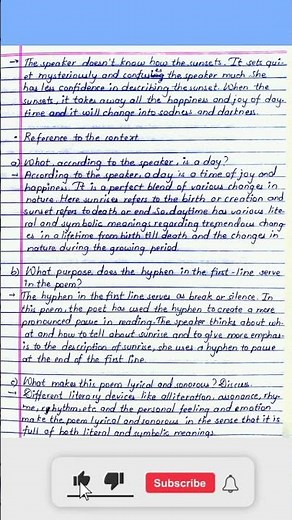 → The speaker doesn't know how the sunsets. It sets qui-
et mysteriously and confusing the speaker much. She
has less confidence in describing the sunset. When the
sunsets, it takes away all the happiness and joy of day-
time and it will change into sadness and darkness.
• Reference to the context
a) What, according to the speaker, is a day?
→ According to the speaker, a day is a time of joy and
happiness. It is a perfect blend of various changes in
nature. Here sunrises refers to the birth or creation and
sunset refers to death or end. So, daytime has various lite-
ral and symbolic meanings regarding tremendous chang-
es in a lifetime from birth till death and the changes in
nature during the growing period.
b) What purpose does the hyphen in the first-line serve
in the poem?
→ The hyphen in the first line serves as break or silence. In
this poem, the poet has used the hyphen to create a more
pronounced pause in reading. The speaker thinks about wh-
at and how to tell about sunrise and to give more emphas-
is to the description of sunrise, she uses a hyphen to pause
at the end of the first line.
c) What makes this poem lyrical and sonorous? Discuss.
→ Different literary devices like alliteration, assonance, rhy-
me, rhythm, etc and the personal feeling and emotion
make the poem lyrical and sonorous in the sense that it is
full of both literal and symbolic meanings.
Subscribe